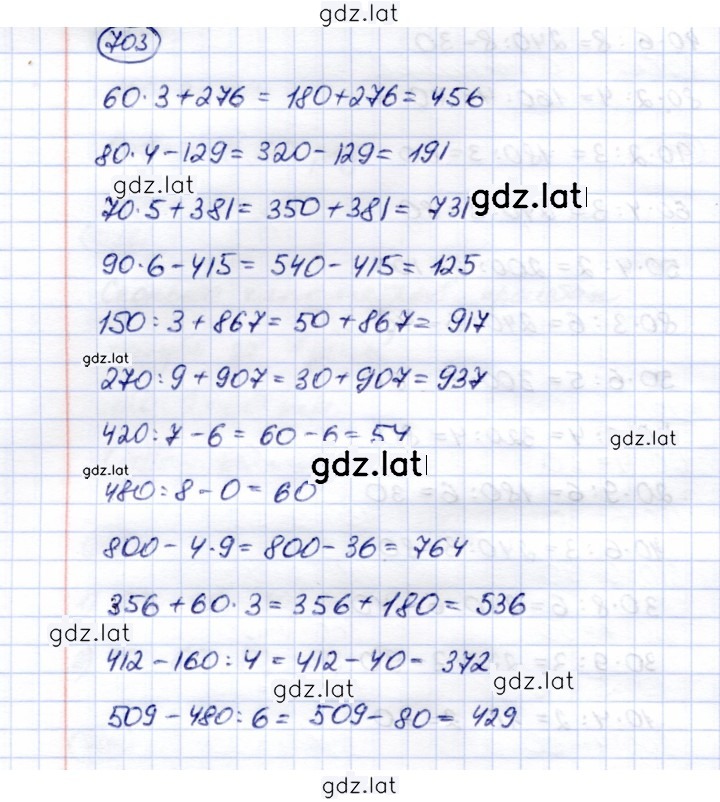 gdz.lat
703
60·3+276 = 180+276 = 456
80·4-129 = 320-129 = 191
gdz.lat
70·5+381 = 350+381 = 731
gdz.lat
90·6-415 = 540-415 = 125
150:3+867 = 50+867 = 917
gdz.lat
270:9+907 = 30+907 = 937
420:7-6 = 60-6 = 54
gdz.lat
gdz.lat
gdz.lat
480:8-0 = 60
800-4·9 = 800-36 = 764
356+60·3 = 356+180 = 536
gdz.lat
412-160:4 = 412-40- 372
gdz.lat
gdz.lat
509-480:6 = 509-80 = 429
gdz.lat